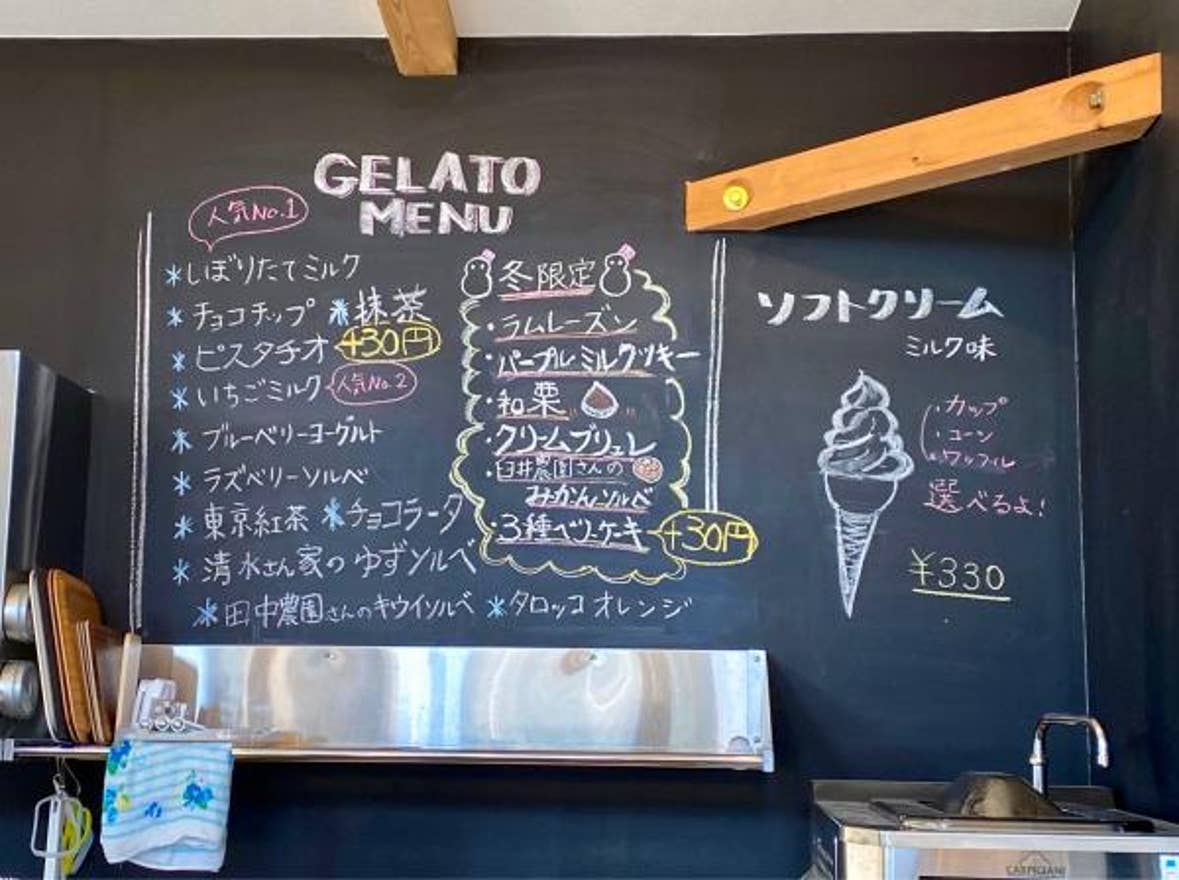 GELATO
MENU
人気No.1
*しぼりたてミルク
*チョコチップ *抹茶
*ピスタチオ +30円
*いちごミルク 人気No.2
*ブルーベリーヨーグルト
*ラズベリーソルベ
*東京紅茶 *チョコラータ
*清水さん家のゆずソルベ
*田中農園さんのキウイソルベ *タロッコオレンジ
冬限定
・ラムレーズン
・パープルミルクッキー
・和栗
・クリームブリュレ
・臼井農園さんの
みかんソルベ
・3種ベリーケーキ +30円
ソフトクリーム
ミルク味
・カップ
・コーン
・ワッフル
選べるよ!
¥330
CARPIGIANI